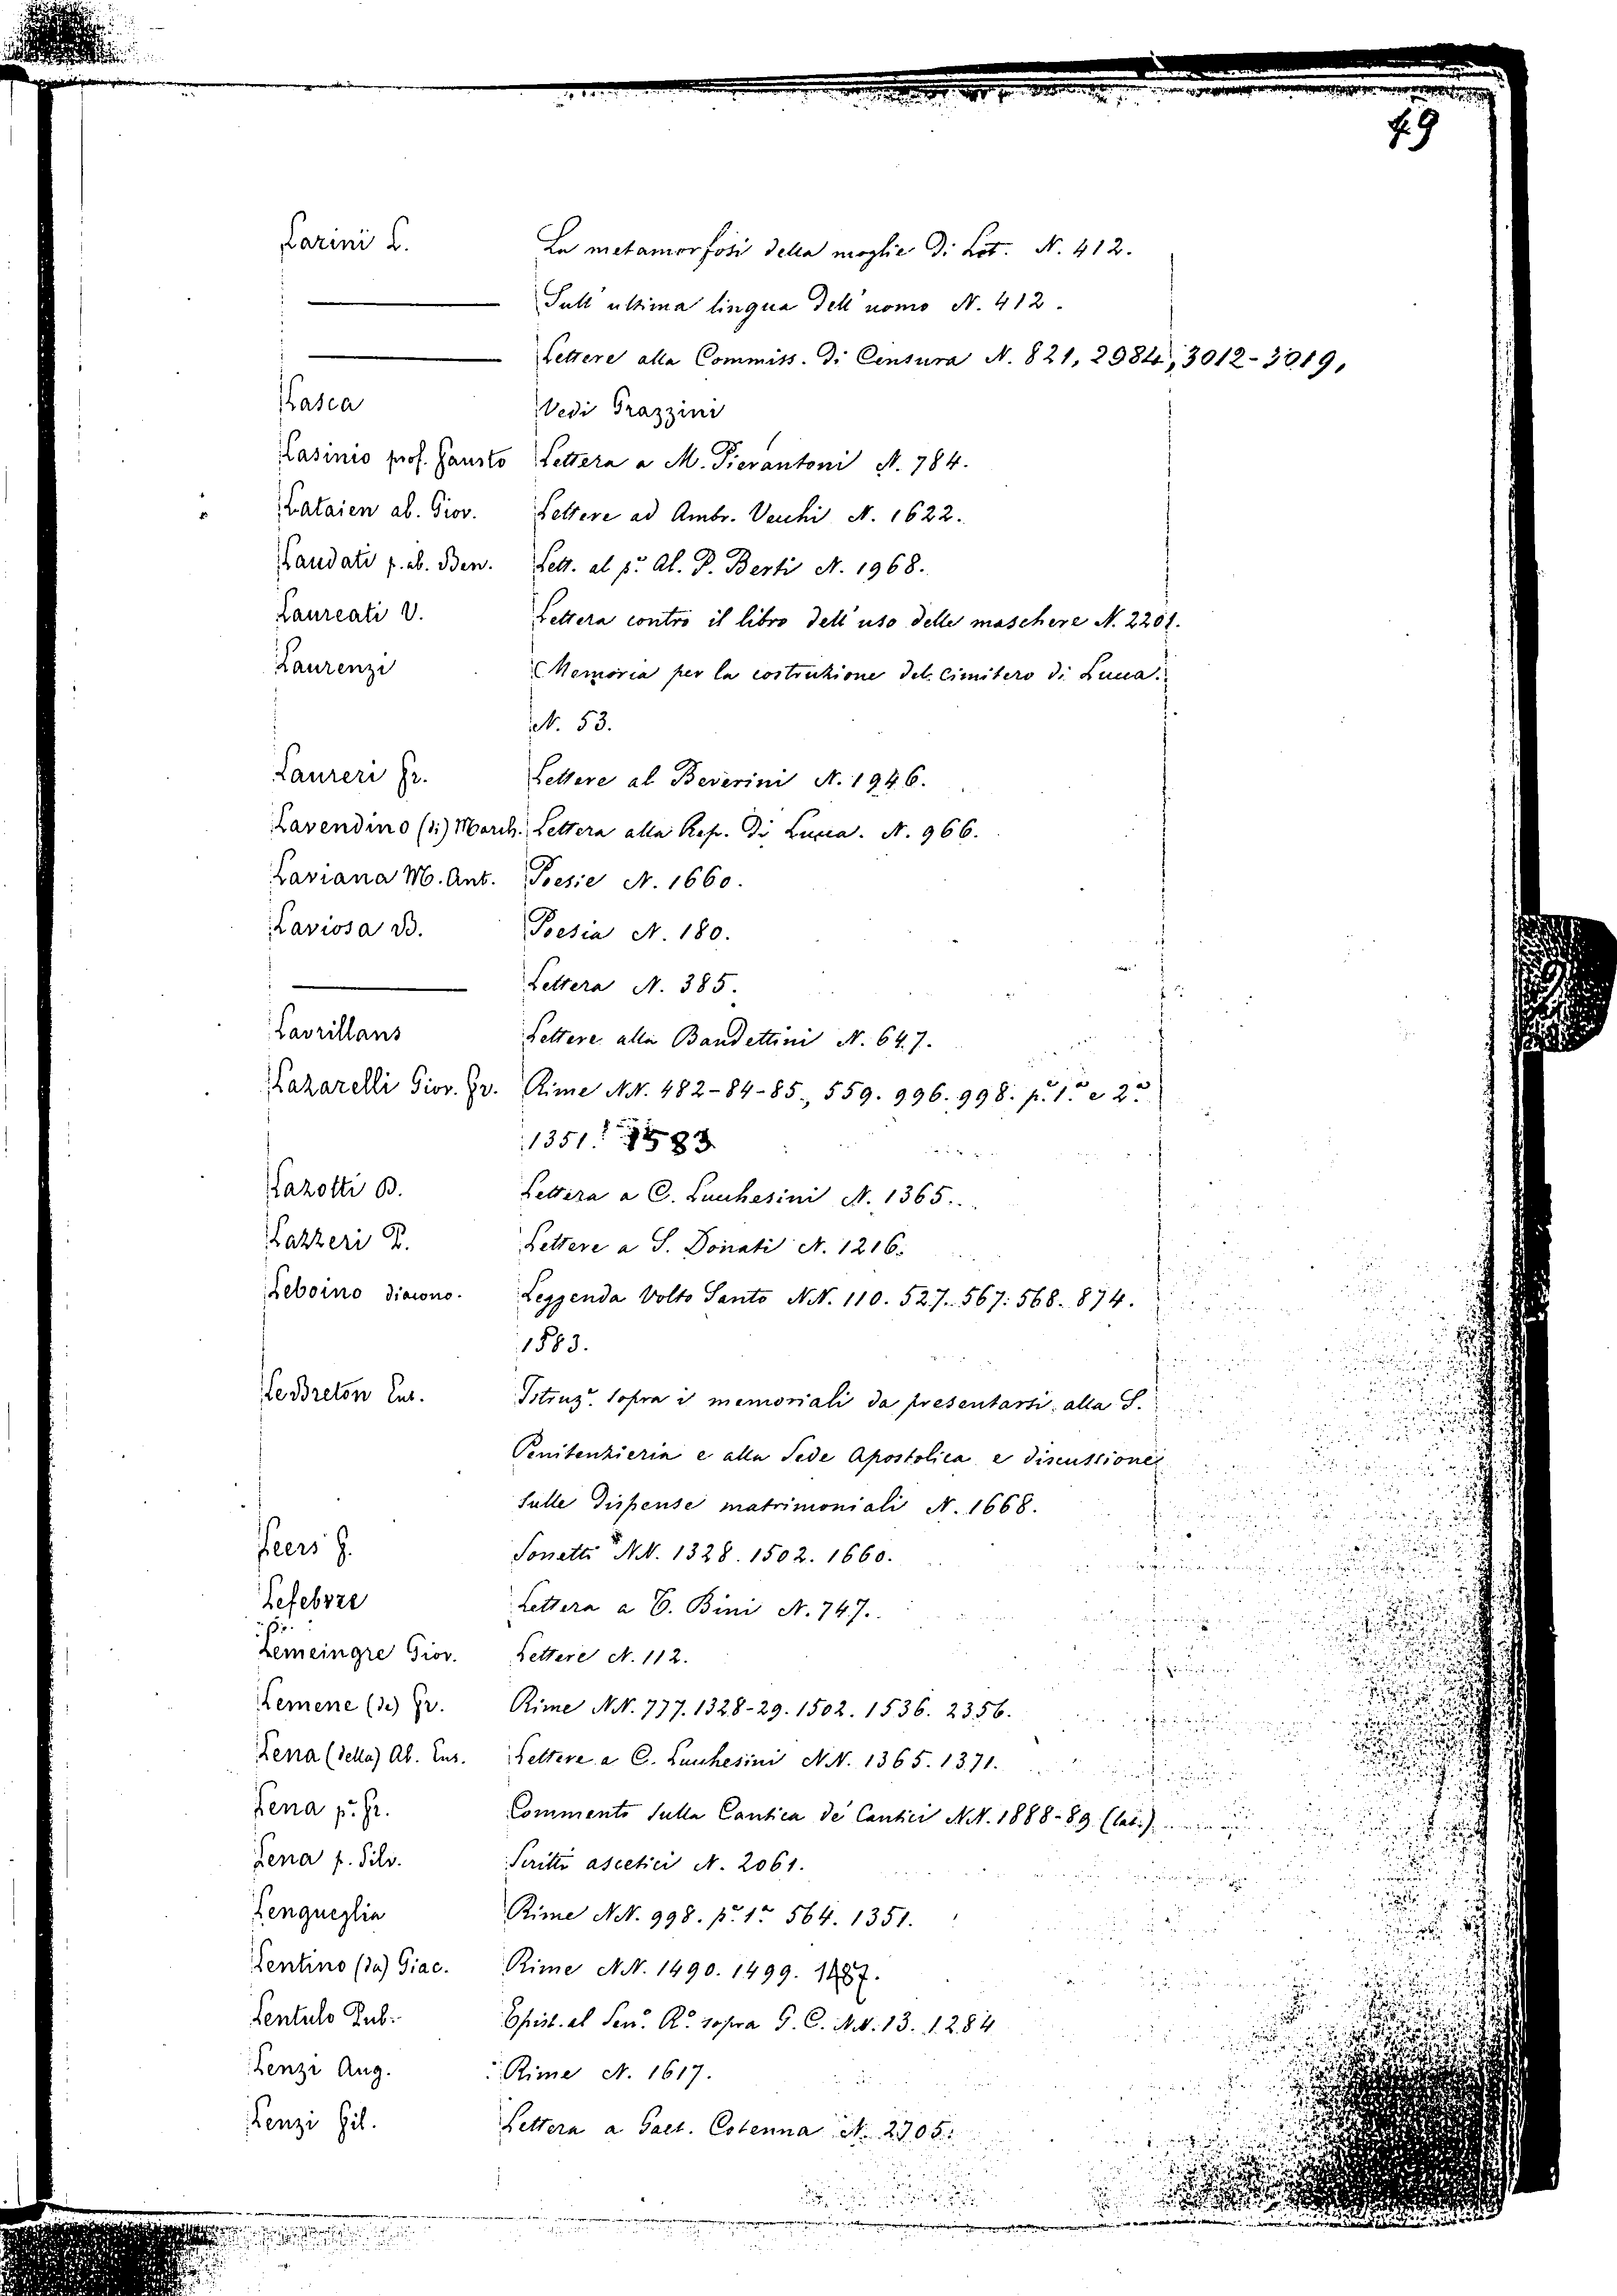 49
Larini L. La metamorfosi della moglie di Lot. N. 412.
Sull' ultima lingua dell' uomo N. 412.
Lettere alla Commiss. di Censura N. 821, 2984, 3012-3019,
Lasca Vedi Grazzini
Lasinio prof. Fausto Lettera a M. Pierantoni N. 784.
Lataien ab. Giov. Lettere ad Ambr. Vecchi N. 1622.
Laudati p. ab. Ben. Lett. al p.e Al. P. Berti N. 1968.
Laureati V. Lettera contro il libro dell' uso delle maschere N. 2201.
Laurenzi Memoria per la costruzione del Cimitero di Lucca.
N. 53.
Laureri Fr. Lettere al Beverini N. 1946.
Lavendino (di) March. Lettera alla Rep. di Lucca. N. 966.
Laviana M. Ant. Poesie N. 1660.
Laviosa B. Poesia N. 180.
Lettera N. 385.
Lavrillans Lettere alla Bandettini N. 647.
Lazarelli Giov. Fr. Rime NN. 482-84-85, 559. 996. 998. p.e 1.a e 2.a
1351. 1583
Lazotti B. Lettera a C. Lucchesini N. 1365.
Lazzeri P. Lettere a S. Donati N. 1216.
Leboino diacono. Leggenda Volto Santo NN. 110. 527. 567. 568. 874.
1583.
Le Breton Eus. Istruz.e sopra i memoriali da presentarsi alla S.
Penitenzieria e alla Sede Apostolica e discussione
sulle dispense matrimoniali N. 1668.
Leers F. Sonetti NN. 1328. 1502. 1660.
Lefebvre Lettera a T. Bini N. 747.
Lemeingre Giov. Lettere N. 112.
Lemene (de) Fr. Rime NN. 777. 1328-29. 1502. 1536. 2356.
Lena (della) Ab. Eus. Lettere a C. Lucchesini NN. 1365. 1371.
Lena p.e Fr. Commento sulla Cantica de' Cantici NN. 1888-89 (lat.)
Lena p. Silv. Scritti ascetici N. 2061.
Lengueglia Rime NN. 998. p.e 1.a 564. 1351.
Lentino (da) Giac. Rime NN. 1490. 1499. 1487.
Lentulo Pub. Epist. al Sen. R.o sopra G. C. NN. 13. 1284
Lenzi Aug. Rime N. 1617.
Lenzi Fil. Lettera a Gaet. Cotenna N. 2705.